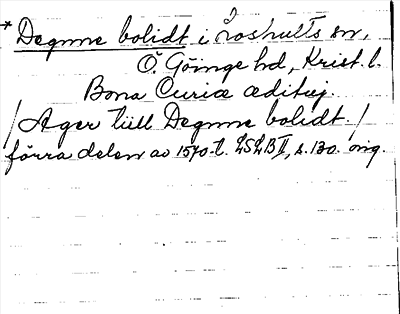 * Degnne bolidt i Loshults sn,
Ö. Göinge hd, Krist. l.
Bona Curiæ ædituj.
/Ager till Degnne bolidt./
förra delen av 1570-t. LSLB II, s. 130. orig.